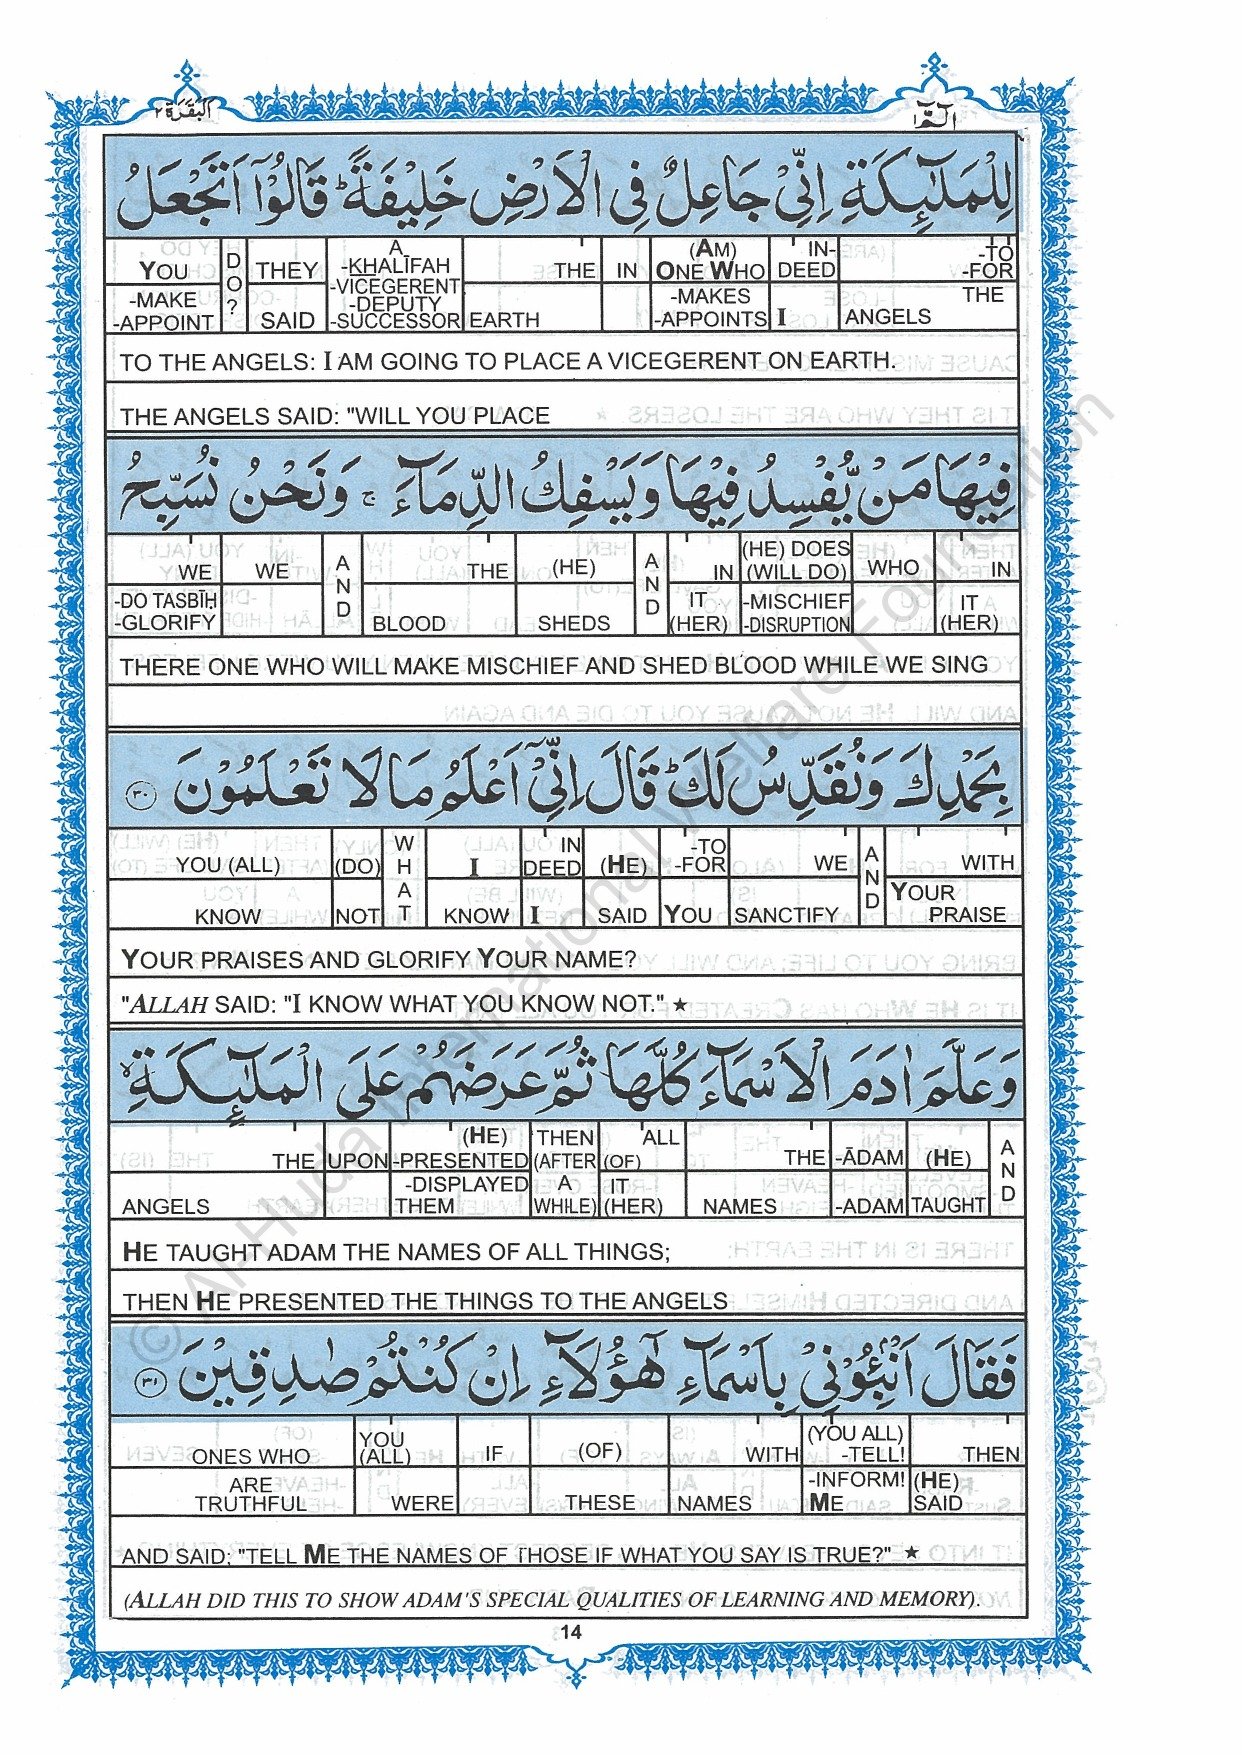 البقرة ٢
الٓمّٓ ١
لِلْمَلٰٓئِكَةِ اِنِّیْ جَاعِلٌ فِی الْاَرْضِ خَلِیْفَةًؕ قَالُوْۤا اَتَجْعَلُ
YOU DO? THEY A -KHALĪFAH THE IN (AM) ONE WHO IN-DEED -TO -FOR
-MAKE -APPOINT SAID -VICEGERENT -DEPUTY -SUCCESSOR EARTH -MAKES -APPOINTS I ANGELS THE
TO THE ANGELS: I AM GOING TO PLACE A VICEGERENT ON EARTH.
THE ANGELS SAID: "WILL YOU PLACE
فِیْهَا مَنْ یُّفْسِدُ فِیْهَا وَیَسْفِكُ الدِّمَآءَۚ وَنَحْنُ نُسَبِّحُ
WE WE AND THE (HE) AND IN (HE) DOES (WILL DO) WHO IN
-DO TASBĪḤ -GLORIFY BLOOD SHEDS IT (HER) -MISCHIEF -DISRUPTION IT (HER)
THERE ONE WHO WILL MAKE MISCHIEF AND SHED BLOOD WHILE WE SING
بِحَمْدِكَ وَنُقَدِّسُ لَكَؕ قَالَ اِنِّیْۤ اَعْلَمُ مَا لَا تَعْلَمُوْنَ ٣٠
YOU (ALL) (DO) WHAT I IN DEED (HE) -TO -FOR WE AND WITH
KNOW NOT KNOW I SAID YOU SANCTIFY YOUR PRAISE
YOUR PRAISES AND GLORIFY YOUR NAME?
"ALLAH SAID: "I KNOW WHAT YOU KNOW NOT." ★
وَعَلَّمَ اٰدَمَ الْاَسْمَآءَ كُلَّهَا ثُمَّ عَرَضَهُمْ عَلَی الْمَلٰٓئِكَةِۙ
THE UPON (HE) -PRESENTED THEN (AFTER ALL (OF) THE -ĀDAM (HE) AND
ANGELS -DISPLAYED THEM A WHILE) IT (HER) NAMES -ADAM TAUGHT
HE TAUGHT ADAM THE NAMES OF ALL THINGS;
THEN HE PRESENTED THE THINGS TO THE ANGELS
فَقَالَ اَنْۢبِئُوْنِیْ بِاَسْمَآءِ هٰۤؤُلَآءِ اِنْ كُنْتُمْ صٰدِقِیْنَ ٣١
ONES WHO YOU (ALL) IF (OF) WITH (YOU ALL) -TELL! THEN
ARE TRUTHFUL WERE THESE NAMES -INFORM! ME (HE) SAID
AND SAID: "TELL ME THE NAMES OF THOSE IF WHAT YOU SAY IS TRUE?" ★
(ALLAH DID THIS TO SHOW ADAM'S SPECIAL QUALITIES OF LEARNING AND MEMORY).
14
© Al-Huda International Welfare Foundation